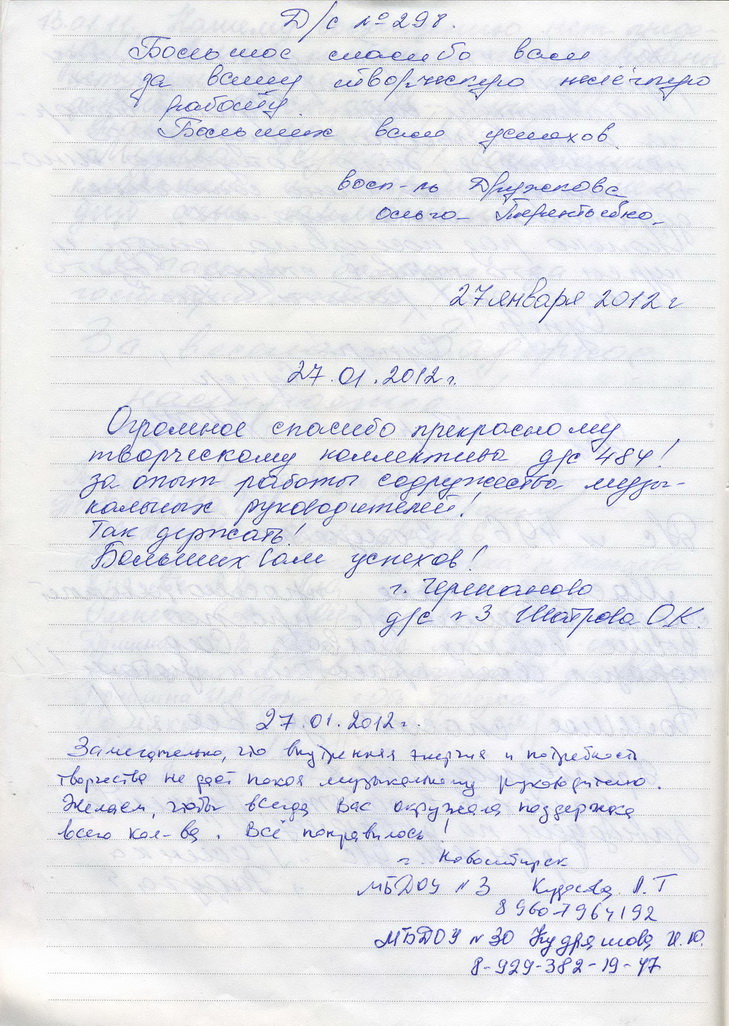 Д/с № 298.
Большое спасибо вам
за вашу творческую
работу.
Больших вам успехов.
восп-ль
27 января 2012 г
27.01.2012 г.
Огромное спасибо прекрасному
творческому коллективу д/с 484!
за опыт работы содружества музы-
кальных руководителей!
Так держать!
Больших Вам успехов!
г. Черепаново
д/с № 3 Шатрова О.К.
27.01.2012 г.
Замечательно, что внутренняя энергия и потребность
творчества не даёт покоя музыкальному руководителю.
Желаем, чтобы всегда Вас окружала поддержка
всего кол-ва. Всё понравилось!
г. Новосибирск
МБДОУ № 3
8960-7964192
МБДОУ № 30 Кудряшова И.Ю.
8-929-382-19-47